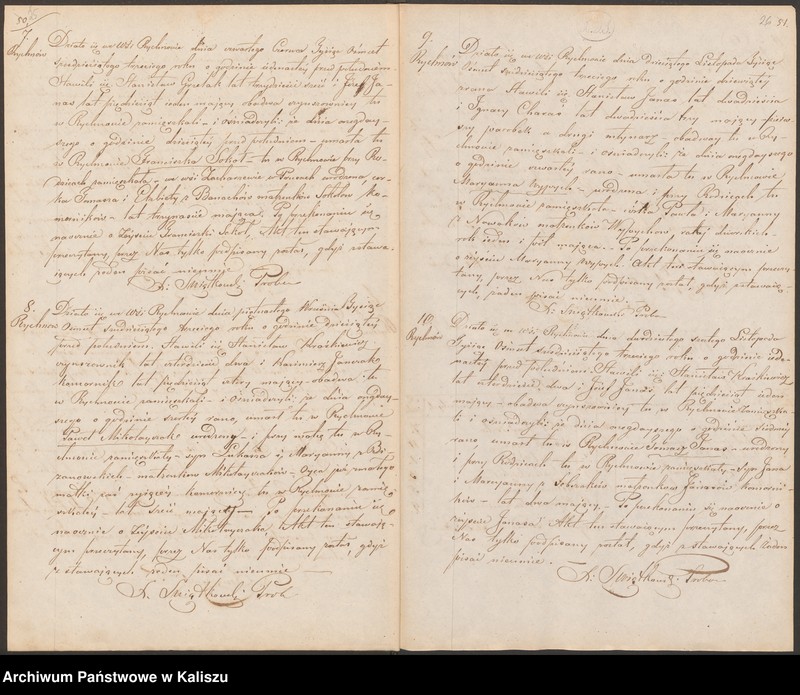 50
7.
Rychnów
Działo się we wsi Rychnowie dnia czwartego Czerwca Tysiąc Ośmset
siedmdziesiątego trzeciego roku o godzinie jedenastej przed południem
Stawili się Stanisław Grzelak lat trzydzieści sześć i Józef Ja-
nas lat pięćdziesiąt jeden mający obadwa wyrobnicy tu
w Rychnowie zamieszkali i oświadczyli: że dnia wczoraj-
szego o godzinie dziesiątej przed południem umarła tu
w Rychnowie Franciszka Sokół tu w Rychnowie przy Ro-
dzicach zamieszkała we wsi urodzona, cór-
ka Tomasza i Elżbiety z Banachów małżonków Sokołów ko-
morników lat trzynaście mająca. Po przekonaniu się
naocznie o zejściu Franciszki Sokół, Akt ten stawającym
przeczytany, przez Nas tylko podpisany został, gdyż z stawa-
jących żaden pisać nieumie
8.
Rychnów
Działo się we wsi Rychnowie dnia piętnastego Września Tysiąc
Ośmset siedmdziesiątego trzeciego roku o godzinie dziesiątej
przed południem, Stawili się Stanisław
lat czterdzieści dwa i Kazimierz
komornik lat pięćdziesiąt cztery mający obadwa tu
w Rychnowie zamieszkali i oświadczyli: że dnia wczoraj-
szego o godzinie szóstej rano, umarł tu w Rychnowie
Paweł Mikołayczak urodzony i przy matce tu w Ry-
chnowie zamieszkały syn Łukasza i Maryanny z
małżonków Mikołayczaków Ojca już zmarłego
matki zaś żyjącej komornicy tu w Rychnowie zamie-
szkałej lat sześć mający po przekonaniu się
naocznie o Zejściu Mikołayczaka, Akt ten stawają-
cym przeczytany, przez Nas tylko podpisany został, gdyż
z stawających żaden pisać nieumie
26 51
9.
Rychnów
Działo się we wsi Rychnowie dnia Dziesiątego Listopada Tysiąc
Ośmset siedmdziesiątego trzeciego roku o godzinie dziewiątej
rano Stawili się, Stanisław Janas lat dwadzieścia
i Ignacy lat dwadzieścia trzy mający pierw-
szy parobek a drugi obadwaj tu w Ry-
chnowie zamieszkali i oświadczyli: że dnia wczorajszego
o godzinie czwartej rano umarła tu w Rychnowie
Maryanna urodzona i przy Rodzicach tu
w Rychnowie zamieszkała córka Pawła i Maryanny
z Nowaków małżonków
rok jeden i pół mająca. Po przekonaniu się naocznie
o zejściu Maryanny Akt ten stawającym przeczy-
tany, przez Nas tylko podpisany został, gdyż z stawają-
cych żaden pisać nieumie
10.
Rychnów
Działo się we wsi Rychnowie dnia dwudziestego szóstego Listopada
Tysiąc Ośmset siedmdziesiątego trzeciego roku o godzinie jede-
nastej przed południem Stawili się: Stanisław
lat czterdzieści dwa i Józef Janas lat pięćdziesiąt jeden
mający obadwa wyrobnicy tu w Rychnowie zamieszka-
li i oświadczyli: że dnia wczorajszego o godzinie siódmej
rano, umarł tu w Rychnowie Tomasz Janas urodzony
i przy Rodzicach tu w Rychnowie zamieszkały syn Jana
i Maryanny z małżonków Janasów komorni-
ków lat dwa mający. Po przekonaniu się naocznie o
zejściu Janasa. Akt ten stawającym przeczytany, przez
Nas tylko podpisany został, gdyż z stawających żaden
pisać nieumie.
Archiwum Państwowe w Kaliszu